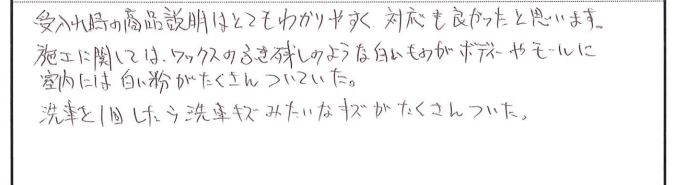 受入れ時の商品説明はとてもわかりやすく、対応も良かったと思います。
施工に関しては、ワックスのふき残しのような白いものがボディーやモールに
室内には白い粉がたくさんついていた。
洗車を1回したら洗車キズみたいなキズがたくさんついた。